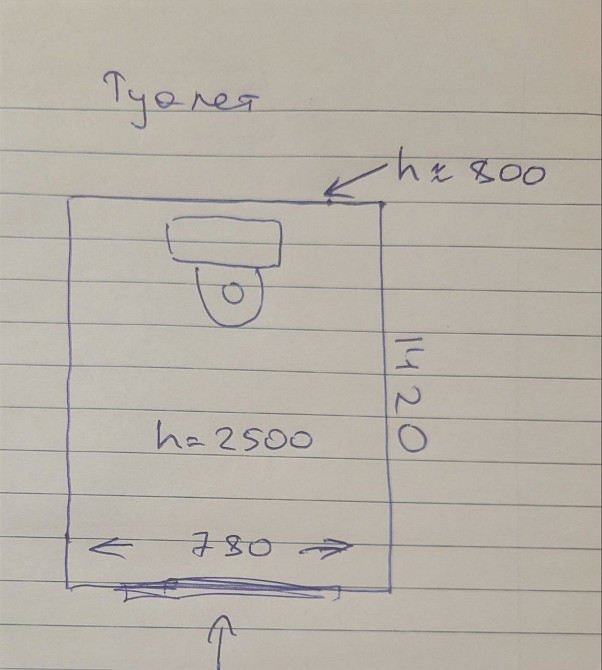 Туалет
h ≈ 800
1420
h = 2500
← 780 →